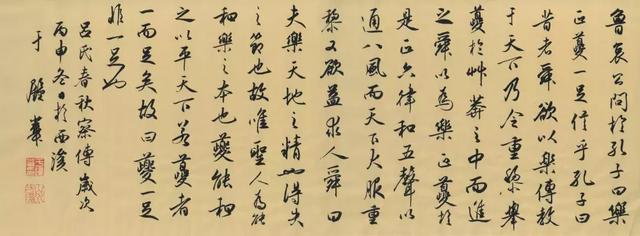 鲁哀公问於孔子曰樂
正夔一足信乎孔子曰
昔者舜欲以樂傳教
于天下乃令重黎舉
夔於艸莽之中而進
之舜以為樂正夔於
是正六律和五聲以
通八風而天下大服重
黎又欲益求人舜曰
夫樂天地之精也得失
之節也故唯聖人為能
和樂之本也夔能和
之以平天下若夔者
一而足矣故曰夔一足
非一足也
吕氏春秋察傳歲次
丙申冬日於西溪
于